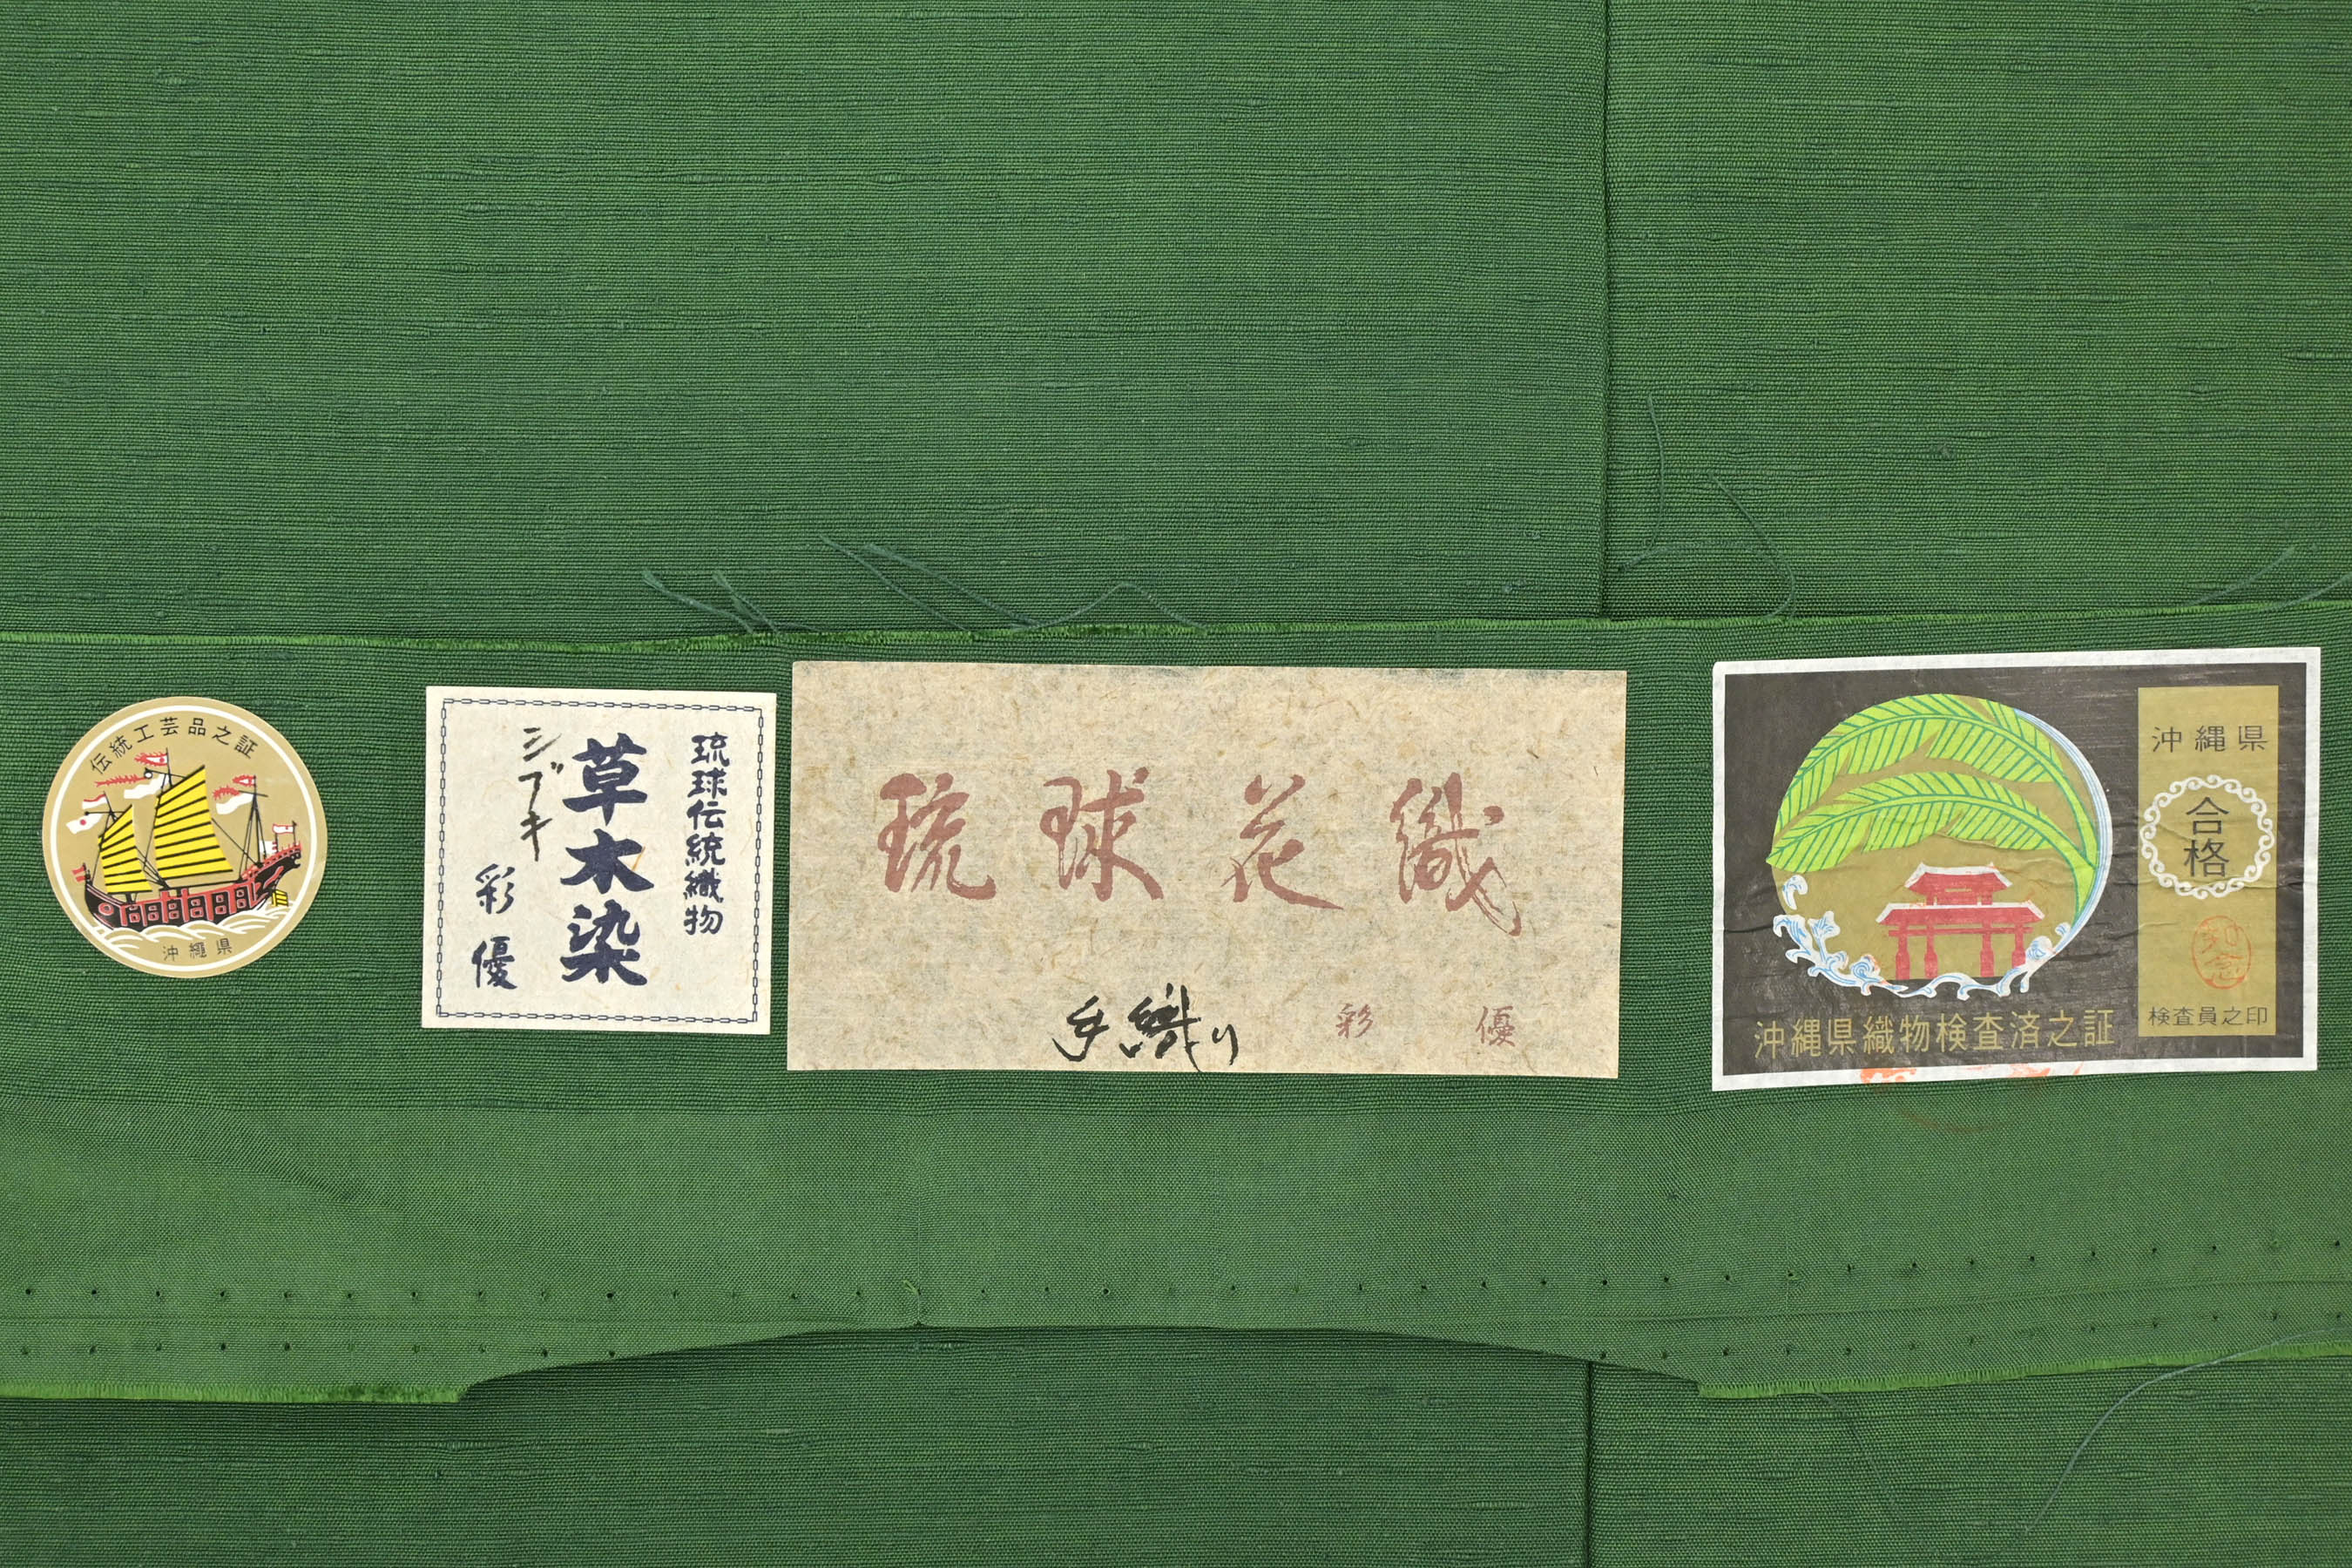 伝統工芸品之証
沖縄県
琉球伝統織物
草木染
シブキ
彩優
琉球花織
手織り
彩 優
沖縄県織物検査済之証
沖縄県
合格
知念
検査員之印